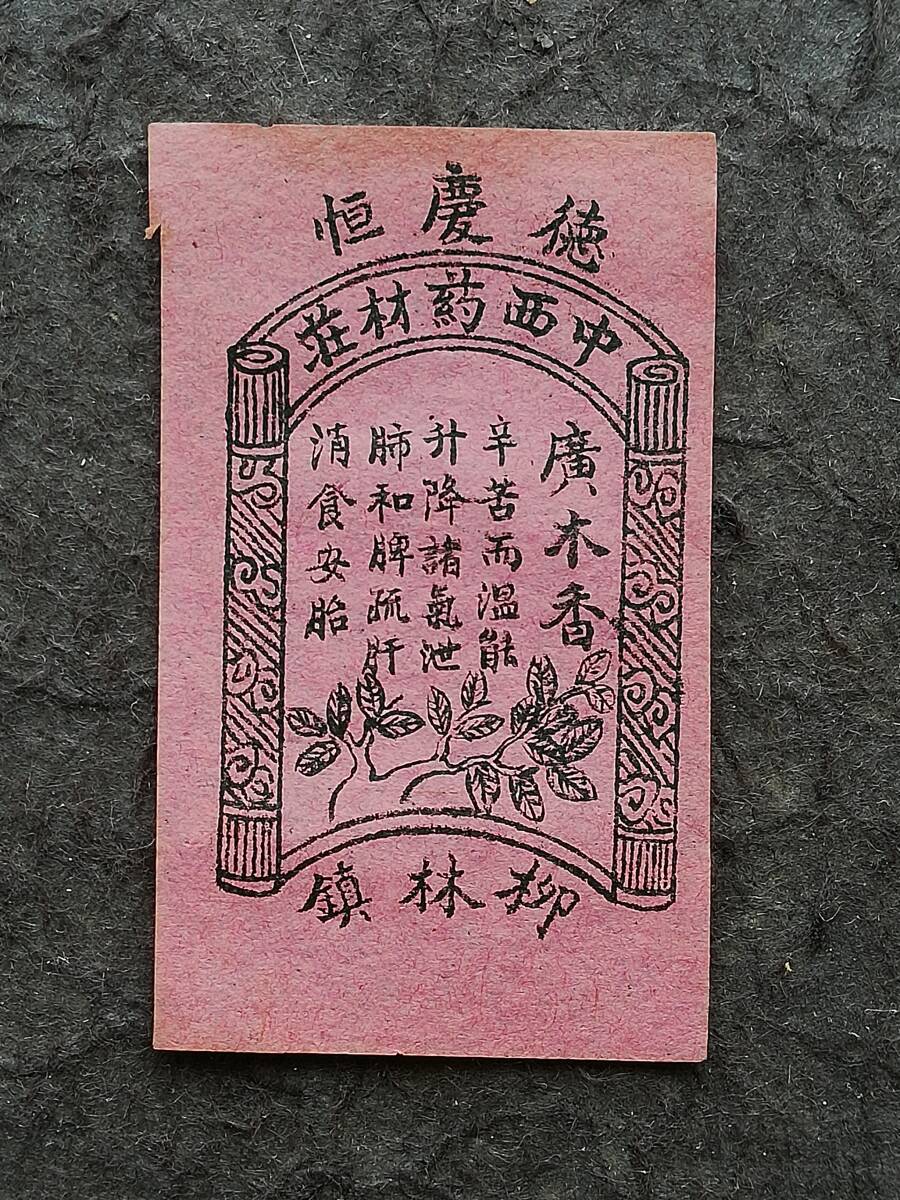 德慶恒
中西药材莊
廣木香
辛苦而温能
升降諸氣泄
肺和脾疏肝
消食安胎
柳林鎮